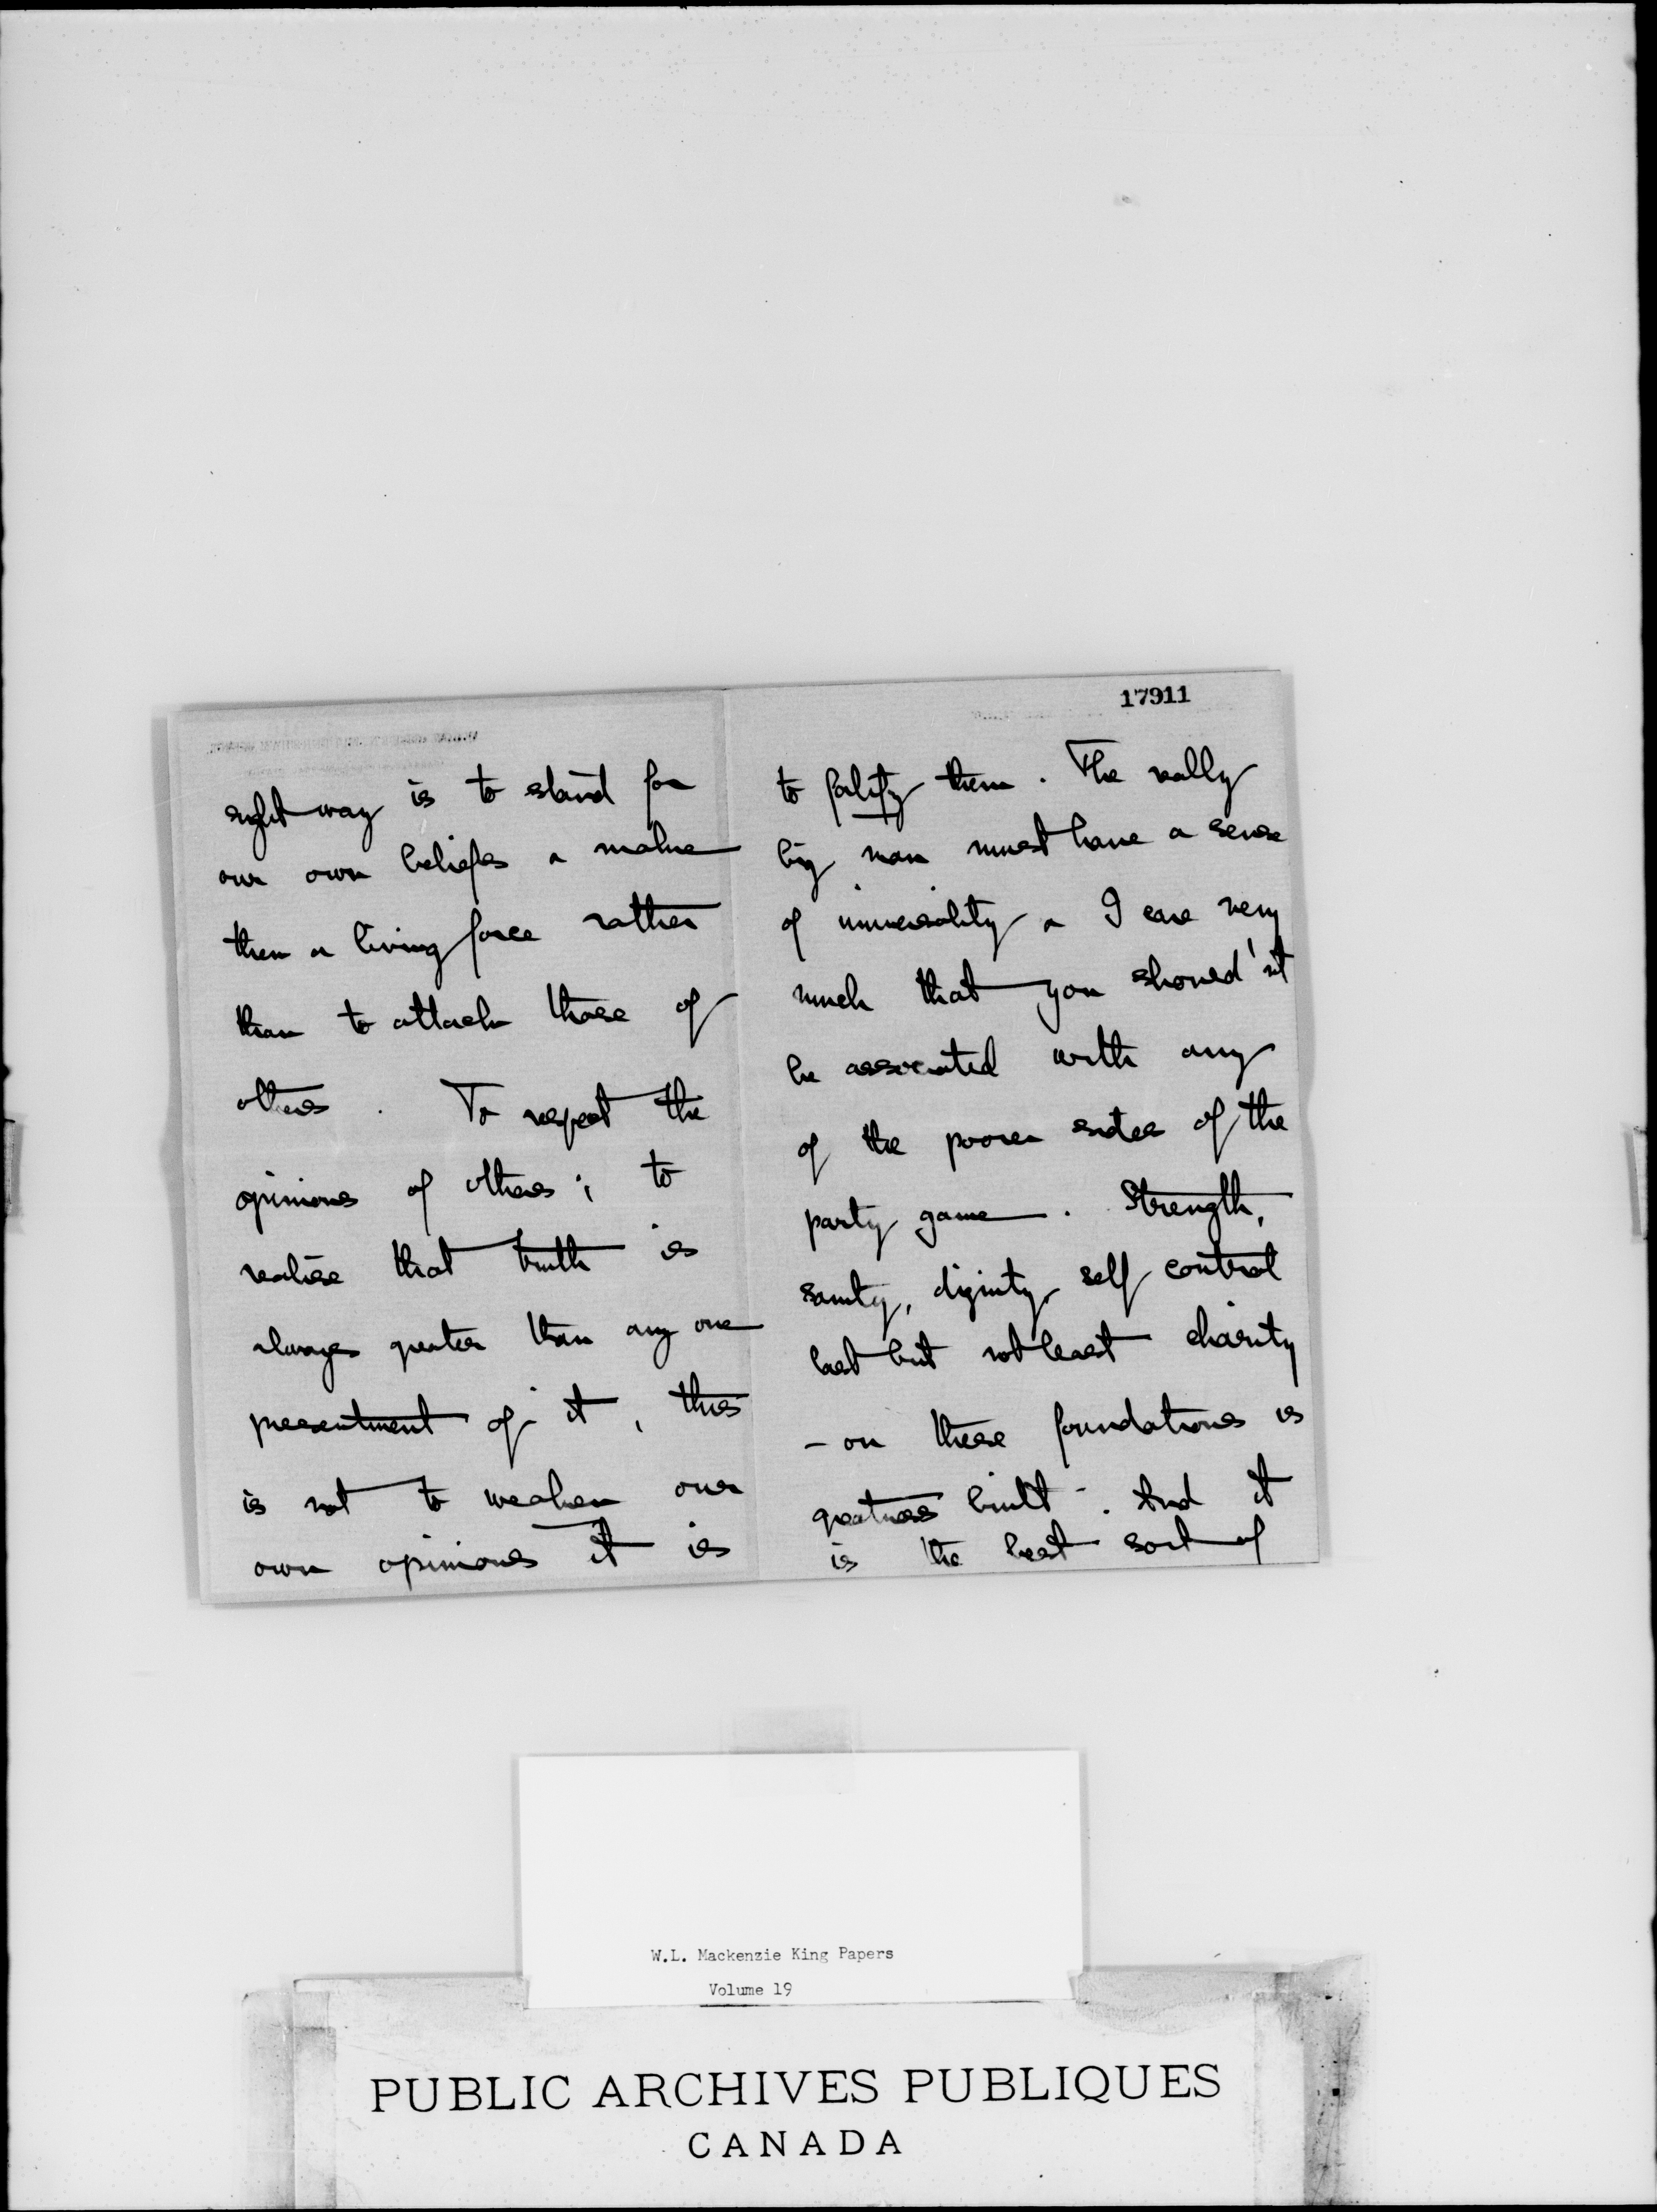 right way is to stand for
our own beliefs & make
them a living force rather
than to attack those of
others. To respect the
opinions of others; to
realise that truth is
always greater than any one
presentment of it, this
is not to weaken our
own opinions it is
17911
to them. The really
big man must have a sense
of universality & I care very
much that you should'nt
be associated with any
of the poorer sides of the
party game. Strength,
sanity, dignity, self control
last but not least charity
- on these foundations is
greatness built -. And it
is the best sort of
W.L. Mackenzie King Papers
Volume 19
PUBLIC ARCHIVES PUBLIQUES
CANADA